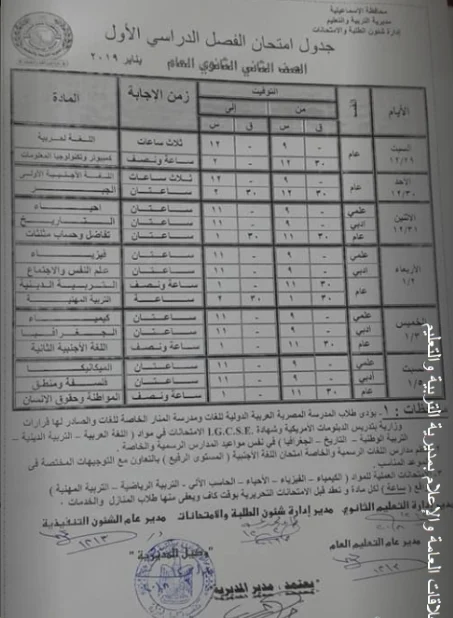 محافظة الإسماعيلية
مديرية التربية والتعليم
إدارة شئون الطلبة والامتحانات
جدول امتحان الفصل الدراسي الأول
يناير ٢٠١٩
الصف الثاني الثانوي العام
الأيام التوقيت زمن الإجابة المادة
من إلى
ق س ق س
السبت ١٢/٢٩ عام - ٩ - ١٢ ثلاث ساعات اللغة العربية
٣٠ ١٢ - ٢ ساعة ونصف كمبيوتر وتكنولوجيا المعلومات
الأحد ١٢/٣٠ عام - ٩ - ١٢ ثلاث ساعات اللغة الأجنبية الأولى
٣٠ ١٢ ٣٠ ٢ ساعتان الجبر
الاثنين ١٢/٣١ علمي - ٩ - ١١ ساعتان أحياء
أدبي - ٩ - ١١ ساعتان التاريخ
عام ٣٠ ١١ ٣٠ ١ ساعتان تفاضل وحساب مثلثات
الأربعاء ١/٢ علمي - ٩ - ١١ ساعتان فيزياء
أدبي - ٩ - ١١ ساعتان علم النفس والاجتماع
عام ٣٠ ١١ - ١ ساعة ونصف التربية الدينية
٣٠ ١ ٣٠ ٢ ساعة التربية المهنية
الخميس علمي - ٩ - ١١ ساعتان كيمياء
أدبي - ٩ - ١١ ساعتان الجغرافيا
عام ٣٠ ١١ - ١ ساعة ونصف اللغة الأجنبية الثانية
علمي ساعتان الميكانيكا
أدبي ساعتان فلسفة ومنطق
عام ساعة ونصف المواطنة وحقوق الإنسان
١ - يؤدى طلاب المدرسة المصرية العربية الدولية للغات ومدرسة المنار الخاصة للغات والصادر لها قرارات
وزارية بتدريس الدبلومات الأمريكية وشهادة I.G.C.S.E الامتحانات في مواد ( اللغة العربية - التربية الدينية -
التربية الوطنية - التاريخ - الجغرافيا ) في نفس مواعيد المدارس الرسمية والخاصة .
مدارس اللغات الرسمية والخاصة امتحان اللغة الأجنبية ( المستوى الرفيع ) بالتعاون مع التوجيهات المختصة في
المناسب .
العملية للمواد ( الكيمياء - الفيزياء - الأحياء - الحاسب الآلي - التربية الرياضية - التربية المهنية )
( ساعة ) لكل مادة و تعقد قبل الامتحانات التحريرية بوقت كاف ويعفى منها طلاب المنازل والخدمات .
إدارة التعليم الثانوي مدير إدارة شئون الطلبة والامتحانات مدير عام الشئون التنفيذية
مدير عام التعليم العام وكيل المديرية
يعتمد، مدير المديرية
العلاقات العامة والإعلام بمديرية التربية والتعليم